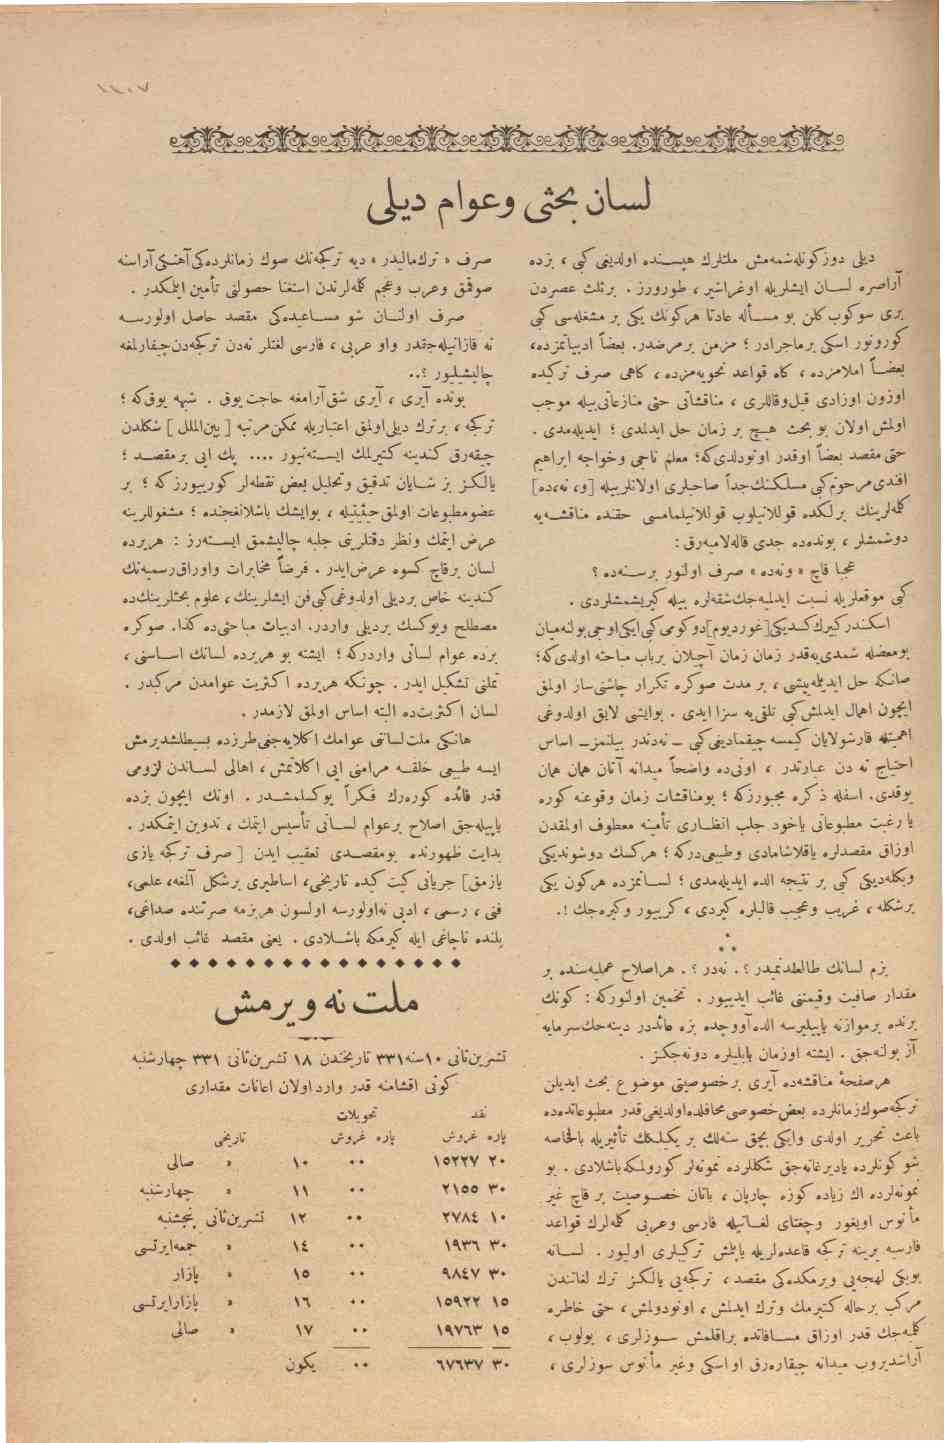 ١١٠٧
لسان بحثی وعوام دیلی
دیلی دوزكونله‌شمه‌مش ملتلرك هپسنده اولدیغی كبی ، بزده
آراصره لسان ایشلریله اوغراشیر ، طورورز . برثلث عصردن
بری سوكوب كلن بو مسأله عادتا هركونك یكی بر مشغله‌سی كبی
كورونور اسكی برماجرادر ؛ مزمن برمرضدر. بعضاً ادبیاتمزده،
بعضاً املامزده ، كاه قواعد نحویه‌مزده ، كاهی صرف تركیده
اوزون اوزادی قیل‌وقاللری ، مناقشاتی حتی منازعاتی‌بیله موجب
اولمش اولان بو بحث هیچ بر زمان حل ایدلمدی ؛ ایدیله‌مدی .
حتی مقصد بعضاً اوقدر اونودلدی‌كه؛ معلم ناجی وخواجه ابراهیم
افندی مرحوم كبی مسلكنك جداً صاحبلری اولانلربیله [و، نه،ده]
كله‌لرینك برلكده قوللانیلوب قوللانیلمامسی حقنده مناقشه‌یه
دوشمشلر ، بونده‌ده جدی قاله‌لامیه‌رق :
عجبا قاچ « ونه‌ده » صرف اولنور برسنه‌ده ؟
كبی موقعلریله نسبت ایدلمیه‌جك شقه‌لره بیله كیریشمشلردی .
اسكندر كبیرك كسدیكی[غوردیوم]دوكومی كبی ایكی‌اوجی بولنه‌میان
بومعضله شمدی‌یه‌قدر زمان زمان آچیلان برباب مباحثه اولدی‌كه؛
صانكه حل ایدیله‌بیتشی ، بر مدت صوكره تكرار چاشنی‌ساز اولمق
ایچون اهمال ایدلمش كبی تلقی‌یه سزا ایدی . بوایشی لایق اولدوغی
اهمیتله قارشولایان كیمسه چیقمادیغی كبی ــ نه‌دندر بیلنمزــ اساس
احتیاج نه دن عبارتدر ، اونی‌ده واضحاً میدانه آتان همان همان
یوقدی. اسفله ذكره مجبورزكه ؛ بومناقشات زمان وقوعنه كوره
یا رغبت مطبوعاتی یاخود جلب انظاری تأمینه معطوف اولمقدن
اوزاق مقصدلره یاقلاشامادی وطبیعی‌دركه ؛ هركسك دوشوندیكی
وبكله‌دیكی كبی بر نتیجه الده ایدیله‌مدی ؛ لسانمزده هركون یكی
برشكله ، غریب وعجیب قالبلره كیردی ، كرییور وكیره‌جك !.
* * *
بزم لسانك طالطه‌لدنمیدر ؟. نه‌در ؟. هراصلاح عملیه‌سنده بر
مقدار صافیت وقیمتنی غائب ایدییور . تخمین اولنوركه : كونك
برنده برموازنه یاپیلیرسه الده‌آووچده بزه عائددر دینه‌جك سرمایه
آز بولنه‌جق . ایشته اوزمان بابلیلره دونه‌جكز .
هرصفحهٔ مناقشه‌ده آیری برخصوصیتی موضوع بحث ایدیلن
تركجه صوك زمانلرده بعض خصوصی محافلده اولدیغی قدر مطبوعاتده‌ده
باعث تحریر اولدی وایكی بچق سنه‌لك بر یكیلكك تأثیریله بالخاصه
شو كونلرده یادیرغانه‌جق شكللرده نمونه‌لر كورولمكه باشلادی . بو
نمونه‌لرده اك زیاده كوزه چارپان ، باتان خصوصیت بر قاچ غیر
مأنوس اویغور وچغتای لغاتیله فارسی وعربی كله‌لرك قواعد
فارسیه یرینه تركجه قاعده‌لریله یاپلش تركیبلری اولیور . لسانه
بویكی لهجه‌یی ویرمكده‌كی مقصد ، تركجه‌یی یالكز ترك لغاتندن
مركب برحاله كتیرمك وترك ایدلمش ، اونودولمش ، حتی خاطره
كلمیه‌جك قدر اوزاق مسافاتده براقلمش سوزلری ، بولوب ،
آراشدیروب میدانه چیقاره‌رق او اسكی وغیر مأنوس سوزلری ،
صرف « ترك‌مالیدر » دیه تركجه‌نك صوك زمانلرده‌كی آهنكی آراسنه
صوقمق وعرب وعجم كله‌لرندن استغنا حصولنی تأمین ایلمكدر .
صرف اولنان شو مساعیده‌كی مقصد حاصل اولورسه
نه قازانیله‌جقدر واو عربی ، فارسی لغتلر نه‌دن تركجه‌دن‌چیقارلمغه
چالیشیلیور ؟..
بونده آیری ، آیری شق آرامغه حاجت یوق . شبهه یوق‌كه ؛
تركجه ، برترك دیلی‌اولمق اعتباریله ممكن مرتبه [ بین‌الملل ] شكلدن
چیقه‌رق كندینه كتیرلمك ایسته‌نیور .... پك ایی برمقصد ؛
یالكز بز شایان تدقیق وتحلیل بعض نقطه‌لر كورییورزكه ؛ بر
عضومطبوعات اولمق حیثیتیله ، بوایشك باشلانغجنده ؛ مشغوللرینه
عرض ایتمك ونظر دقتلرینی جلبه چالیشمق ایسته‌رز : هریرده
لسان برقاچ كسوه عرض‌ایدر . فرضاً مخابرات واوراق رسمیه‌نك
كندینه خاص بردیلی اولدوغی كبی‌فن ایشلرینك ، علوم بحثلرینك‌ده
مصطلح ویوكسك بردیلی واردر. ادبیات مباحثی‌ده كذا. صوكره
برده عوام لسانی واردركه ؛ ایشته بو هریرده لسانك اساسنی ،
تملنی تشكیل ایدر . چونكه هریرده اكثریت عوامدن مركبدر .
لسان اكثریت‌ده البته اساس اولمق لازمدر .
هانكی ملت‌لسانی عوامك اكلایه‌جغی طرزده بسیطلشدیرمش
ایسه طبیعی خلقه مرامنی ایی اكلاتمش ، اهالی لساندن لزومی
قدر فائده كوره‌رك فكراً یوكسلمشدر . اونك ایچون بزده
یاپیله‌جق اصلاح برعوام لسانی تأسیس ایتمك ، تدوین ایتمكدر .
بدایت ظهورنده بومقصدی تعقیب ایدن [ صرف تركجه یازی
یازمق] جریانی كیت كیده تاریخی، اساطیری برشكل آلمغه، علمی،
فنی ، رسمی ، ادبی نه‌اولورسه اولسون هریزمه صرتنده صداغی،
بلنده ناچاغی ایله كیرمكه باشلادی . یعنی مقصد غائب اولدی .
ملت نه ویرمش
تشرین‌ثانی ١٠سنه٣٣١ تاریخندن ١٨ تشرین‌ثانی ٣٣١ چهارشنبه
كونی اقشامنه قدر وارد اولان اعانات مقداری
نقد تحویلات
پاره غروش پاره غروش تاریخی
٢٠ ١٥٢٢٧ ٠٠ ١٠ « صالی
٣٠ ٢١٥٥ ٠٠ ١١ « چهارشنبه
١٠ ٢٧٨٤ ٠٠ ١٢ تشرین‌ثانی پنجشنبه
٣٠ ١٩٣٦ ٠٠ ١٤ « جمعه‌ایرتسی
٣٠ ٩٨٤٧ ٠٠ ١٥ « بازار
١٥ ١٥٩٢٢ ٠٠ ١٦ « بازارایرتسی
١٥ ١٩٧٦٣ ٠٠ ١٧ « صالی
٣٠ ٦٧٦٣٧ ٠٠ یكون